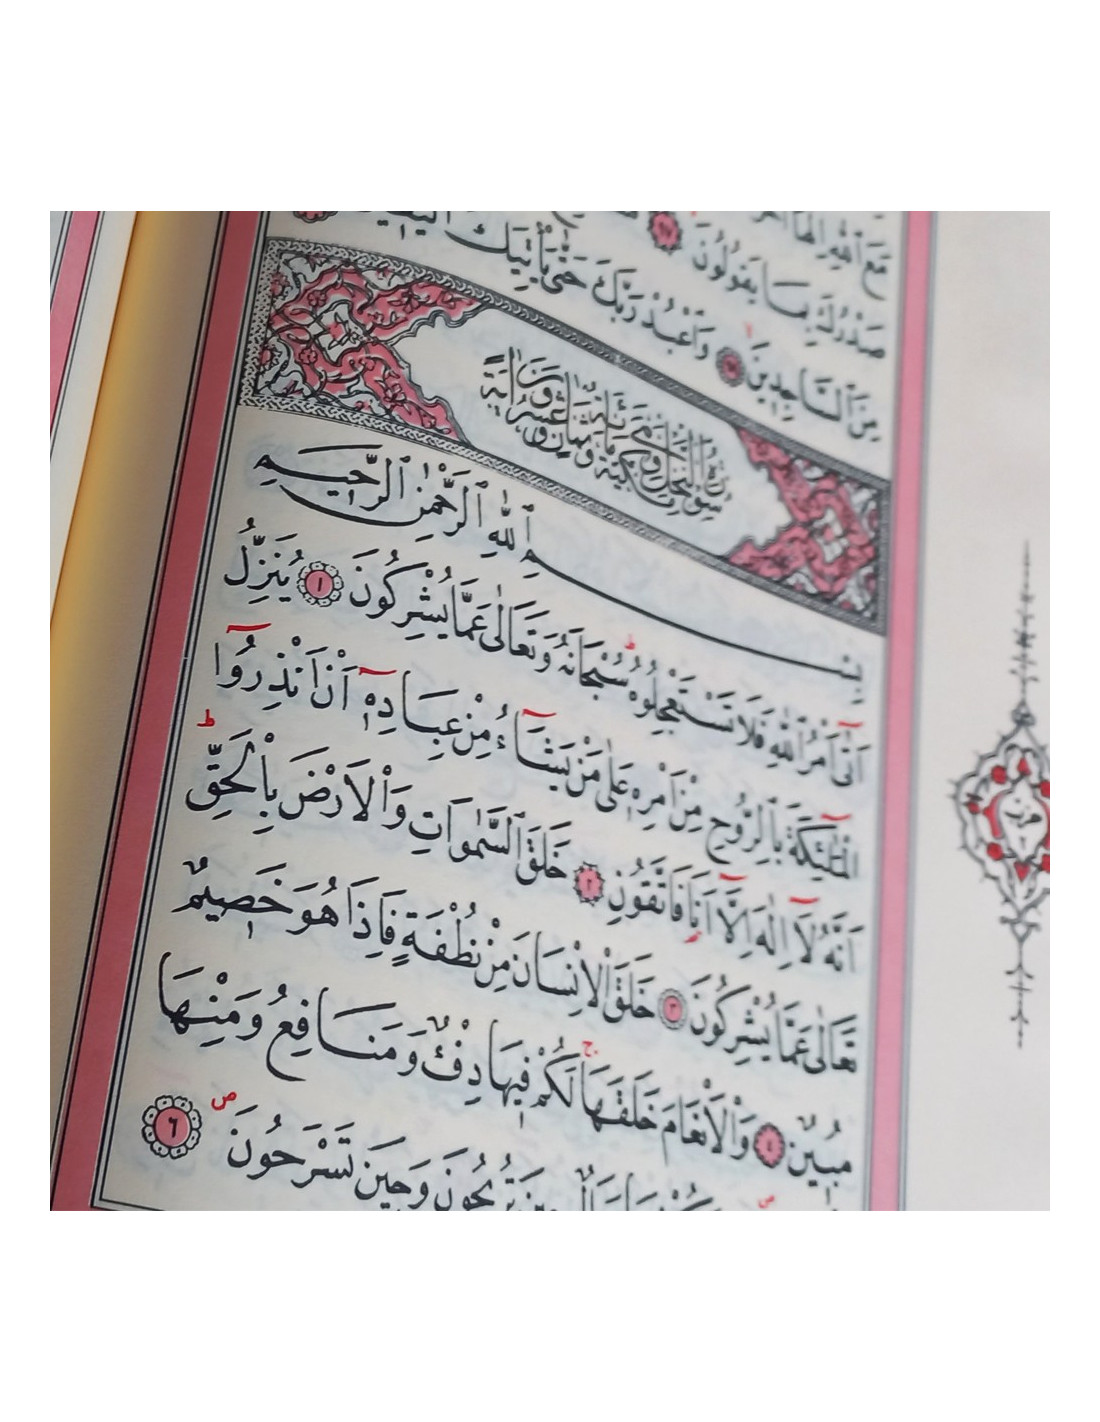 مَعَ اللّٰهِ اِلٰهًا
صَدْرُكَ بِمَا يَقُولُونَ ﴿٩٧﴾
مِنَ السَّاجِدِينَ ﴿٩٨﴾ وَاعْبُدْ رَبَّكَ حَتّٰى يَأْتِيَكَ الْيَقِينُ
سُورَةُ النَّحْلِ مَكِّيَّةٌ وَهِيَ مِائَةٌ وَثَمَانٍ وَعِشْرُونَ اٰيَةً
بِسْمِ اللّٰهِ الرَّحْمٰنِ الرَّحِيمِ
اَتٰٓى اَمْرُ اللّٰهِ فَلَا تَسْتَعْجِلُوهُ ط سُبْحَانَهُ وَتَعَالٰى عَمَّا يُشْرِكُونَ ﴿١﴾ يُنَزِّلُ
الْمَلٰٓئِكَةَ بِالرُّوحِ مِنْ اَمْرِهِ عَلٰى مَنْ يَشَٓاءُ مِنْ عِبَادِهٓ اَنْ اَنْذِرُٓوا
اَنَّهُ لَٓا اِلٰهَ اِلَّٓا اَنَا فَاتَّقُونِ ﴿٢﴾ خَلَقَ السَّمٰوَاتِ وَالْاَرْضَ بِالْحَقِّ ط
تَعَالٰى عَمَّا يُشْرِكُونَ ﴿٣﴾ خَلَقَ الْاِنْسَانَ مِنْ نُطْفَةٍ فَاِذَا هُوَ خَصِيمٌ
مُبِينٌ ﴿٤﴾ وَالْاَنْعَامَ خَلَقَهَا ج لَكُمْ فِيهَا دِفْءٌ وَمَنَافِعُ وَمِنْهَا
حِينَ تُرِيحُونَ وَحِينَ تَسْرَحُونَ ص ﴿٦﴾